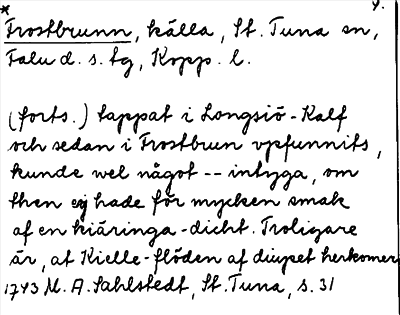 * 4.
Frostbrunn, källa, St. Tuna sn,
Falu d. s. tg, Kopp. l.
(forts.) tappat i Longsiö-Kalf
och sedan i Frostbrun vpfunnits,
kunde wel något -- intyga, om
then ej hade för mycken smak
af en kiäringa-dicht. Troligare
är, at Kielle-flöden af diupet herkomer
1743 M. A. Sahlstedt, St. Tuna, s. 31